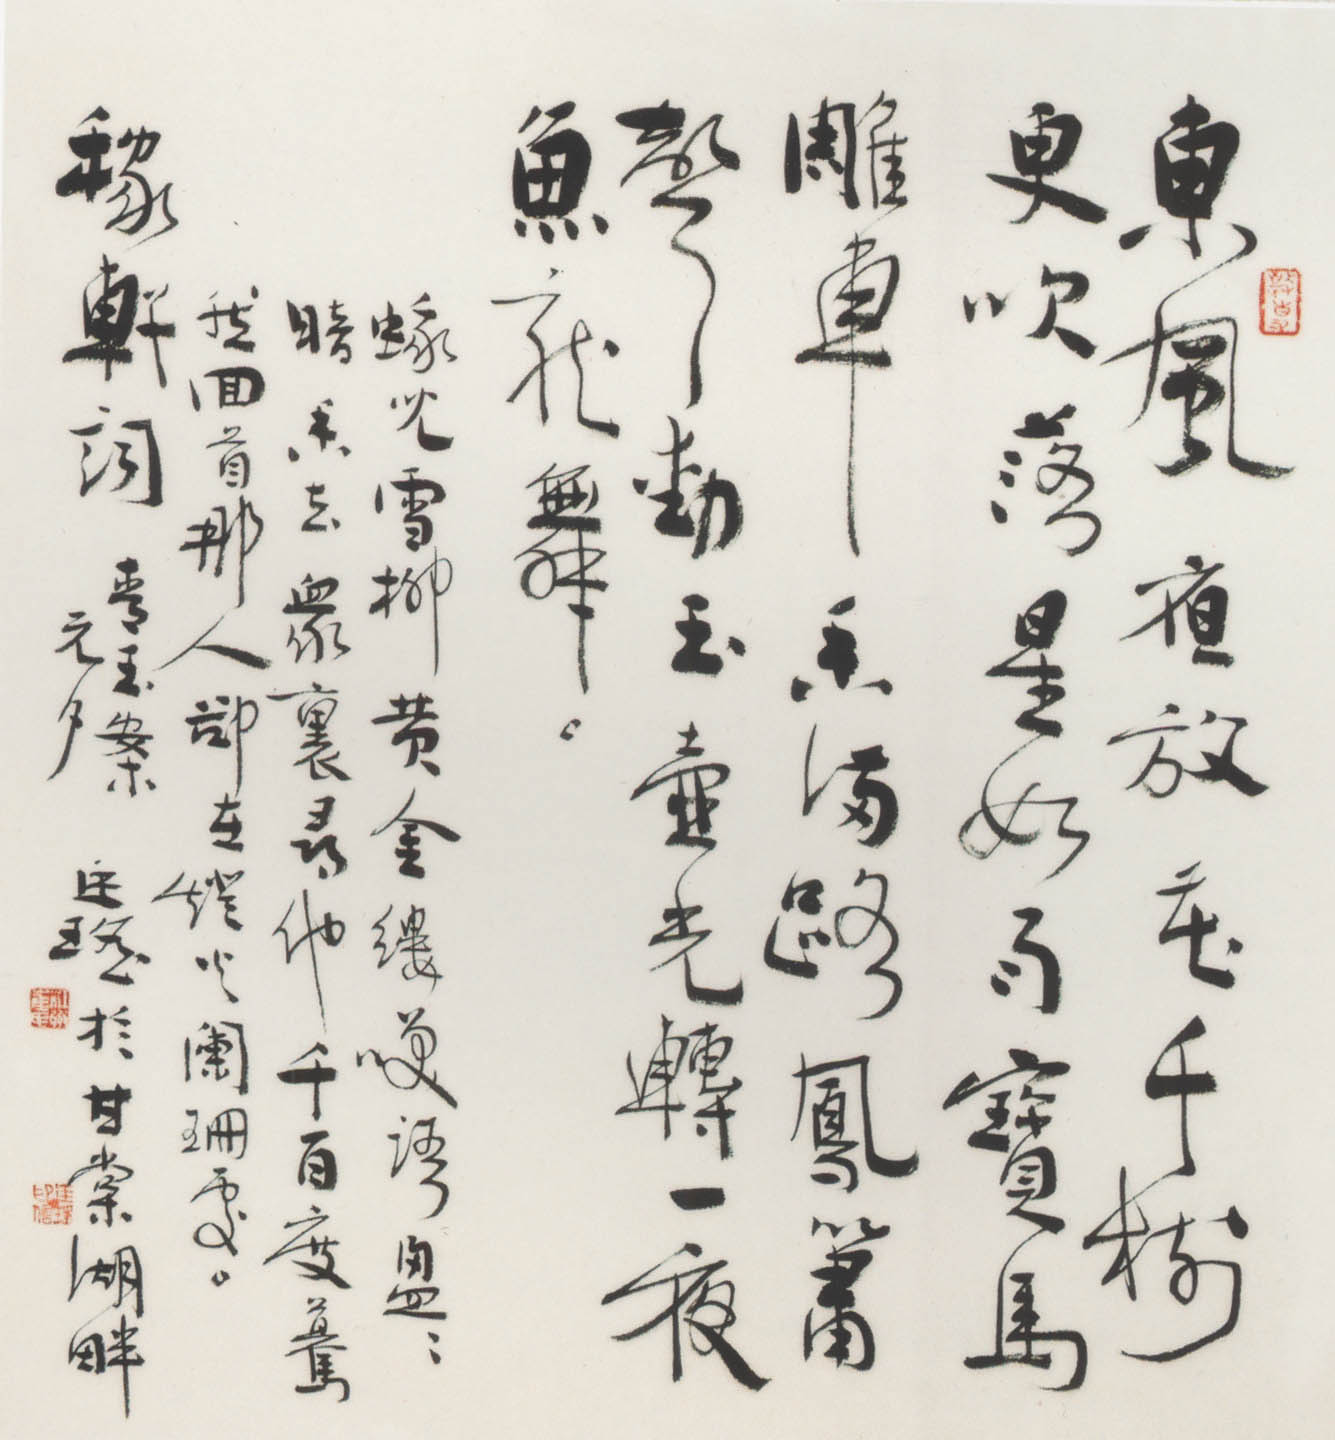 東風夜放花千樹
更吹落星如雨寶馬
雕車香滿路鳳簫
聲動玉壺光轉一夜
魚龍無舞。
蛾兒雪柳黃金縷笑語盈〻
暗香去眾裏尋他千百度驀
然回首那人卻在燈火闌珊處。
稼軒詞
青玉案
元夕
於甘棠湖畔